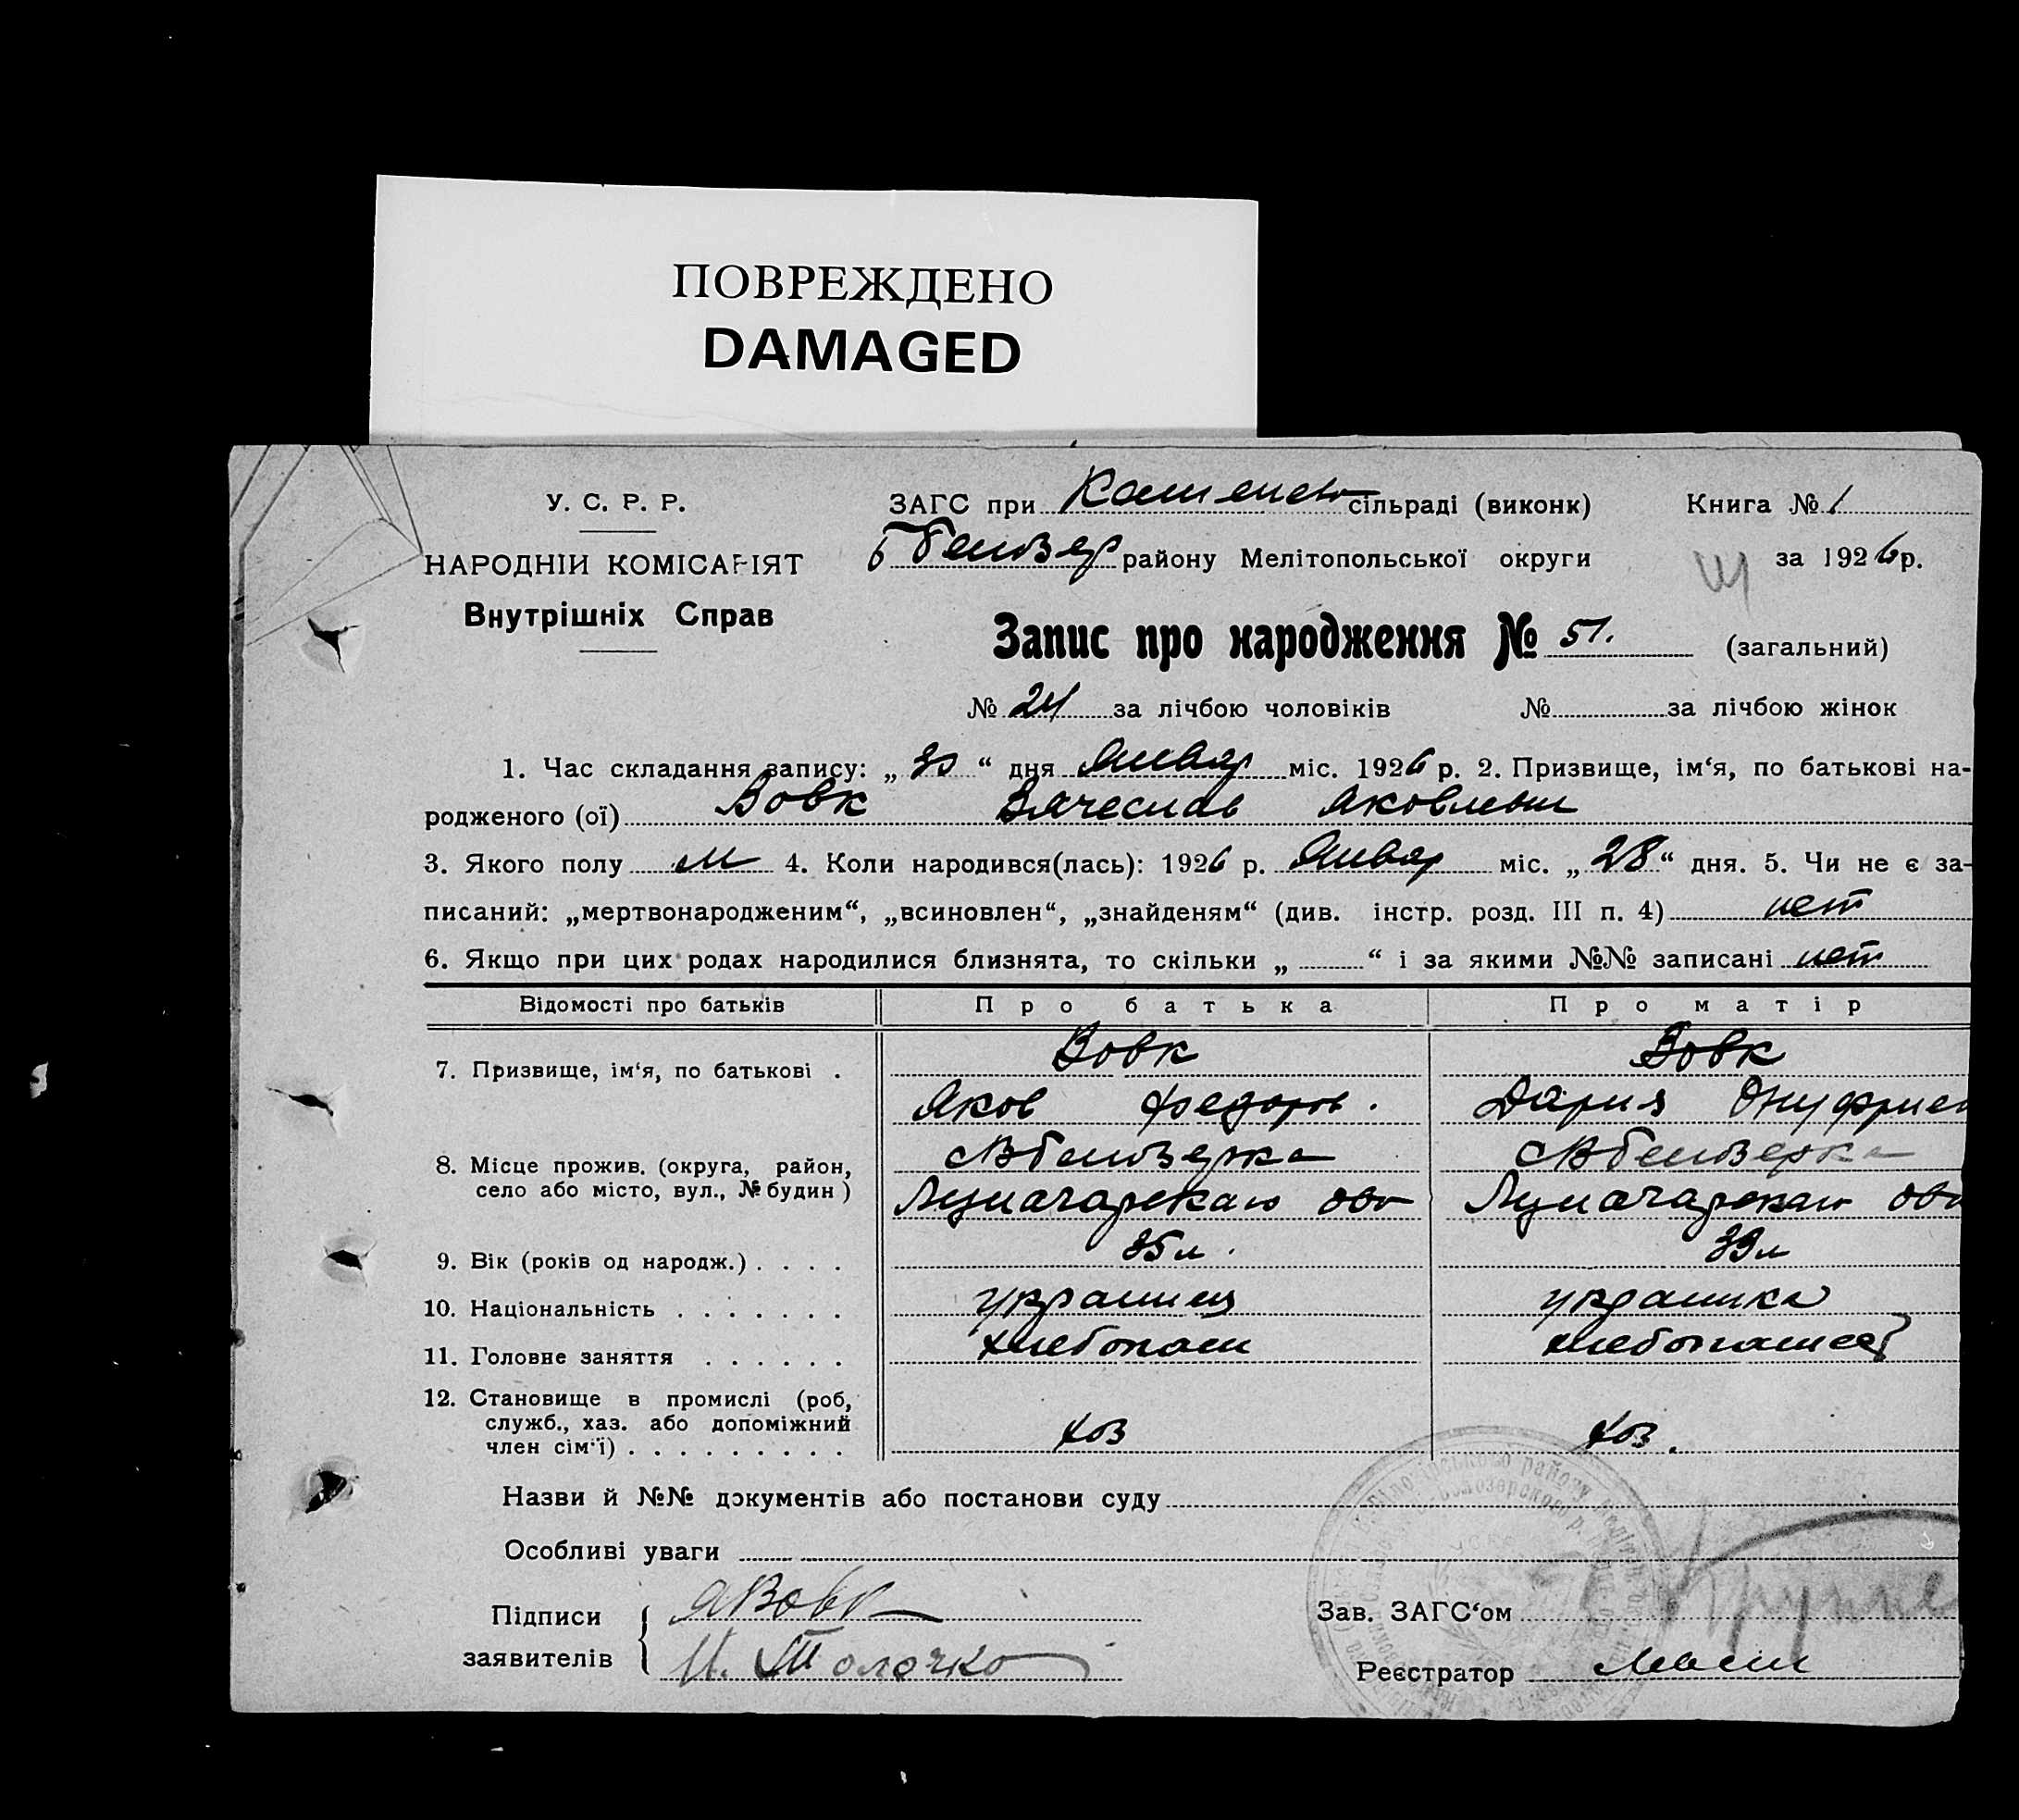 ПОВРЕЖДЕНО
DAMAGED
У. С. Р. Р.
НАРОДНІЙ КОМІСАРІЯТ
Внутрішніх Справ
ЗАГС при сільраді (виконк)
району Мелітопольської округи
Книга № 1
за 1926 р.
Запис про народження № 51. (загальний)
№ 24 за лічбою чоловіків № за лічбою жінок
1. Час складання запису: „ 30 “ дня Январ міс. 1926 р. 2. Призвище, ім‘я, по батькові на-
родженого (ої) Вовк Вячеслав Яковлевич
3. Якого полу м 4. Коли народився(лась): 1926 р. Январ міс. „ 28 “ дня. 5. Чи не є за-
писаний: „мертвонародженим“, „всиновлен“, „знайденям“ (див. інстр. розд. III п. 4) нет
6. Якщо при цих родах народилися близнята, то скільки „ “ і за якими №№ записані нет
Відомості про батьків Про батька Про матір
7. Призвище, ім‘я, по батькові . Вовк Вовк
Яков Федоров. Дария Онуфриев
8. Місце прожив. (округа, район,
село або місто, вул., № будин )
9. Вік (років од народж.) . . . . 35 л. 39 л
10. Національність . . . . . . . украинец украинка
11. Головне заняття . . . . . . хлебопаш
12. Становище в промислі (роб,
служб., хаз. або допоміжний
член сім‘ї) . . . . . . . . . хоз хоз.
Назви й №№ документів або постанови суду
Особливі уваги
Підписи ЯВовк
заявителів И. Толочко
Зав. ЗАГС‘ом
Реєстратор